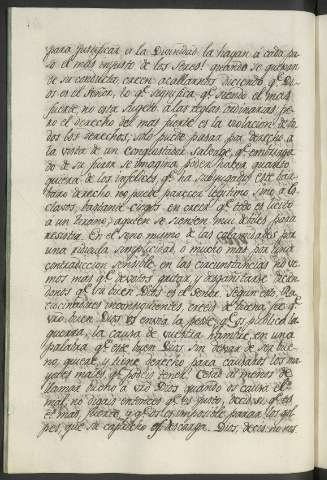 para justificar a la Divinidad la hagan á cada pa-
so el mas injusto de los Seres! quando se quexan
de su conducta, creen acallarnos diciendo q.e Di-
os es el Señor, lo q.e significa q.e siendo el mas
fuerte, no esta sugeto á las reglas ordinarias, pe-
ro el derecho del mas fuerte es la violacion de to-
dos los derechos, solo puede pasar por derecho á
la vista de un conquistador salvage, q.e embriaga-
do de su furia se imagina poder hacer quanto
quiera de los infelices q.e ha subyugado: este bar-
baro derecho no puede parecer legitimo sino á es-
clavos bastante ciegos en creer q.e todo es licito
á un tirano, á quien se sienten mui debiles para
resistir. En el seno mismo de las calamidades por
una ridicula simplicidad, ó mucho mas por una
contradiccion sensible en las circunstancias no ve-
mos mas q.e devotos gritar, y
donos q.e el buen Dios es el Señor. Segun esto, Ra-
ciocinadores inconsequentes, creeis de buena fee q.e
v.ro buen Dios os envia la peste, q.e os produce la
guerra, la causa de vuestra hambre, en una
palabra q.e este buen Dios, sin dexar de ser bue-
no, quiere y tiene derecho para causaros los ma-
yores males q.e podeis tener! Cesad al menos de
llamar bueno á v.ro Dios quando os causa el
mal, no digais entonces q.e es justo, decid q.e
es el mas fuerte, y q.e os es imposible parar los gol-
pes, que su capricho os descarga. Dios, decis, no nos